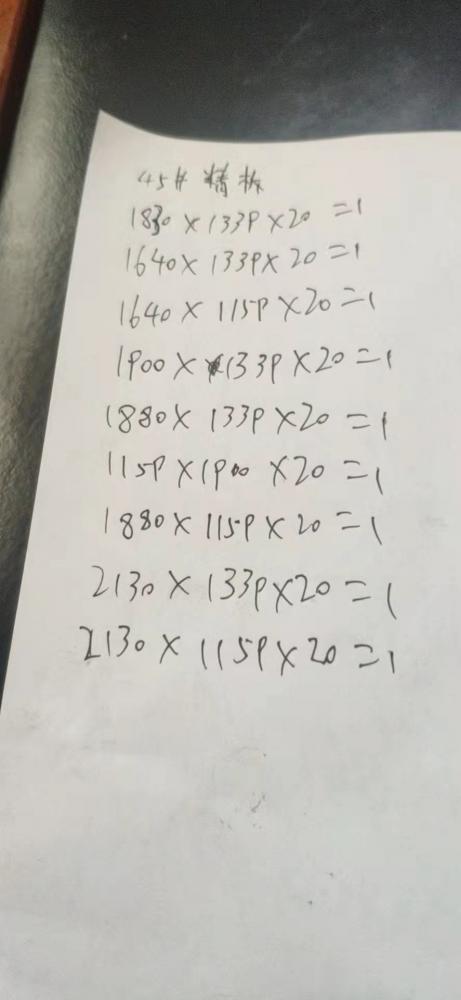 45# 精板
1830×1339×20=1
1640×1339×20=1
1640×1159×20=1
1900××1339×20=1
1880×1339×20=1
1159×1900×20=1
1880×1159×20=1
2130×1339×20=1
2130×1159×20=1